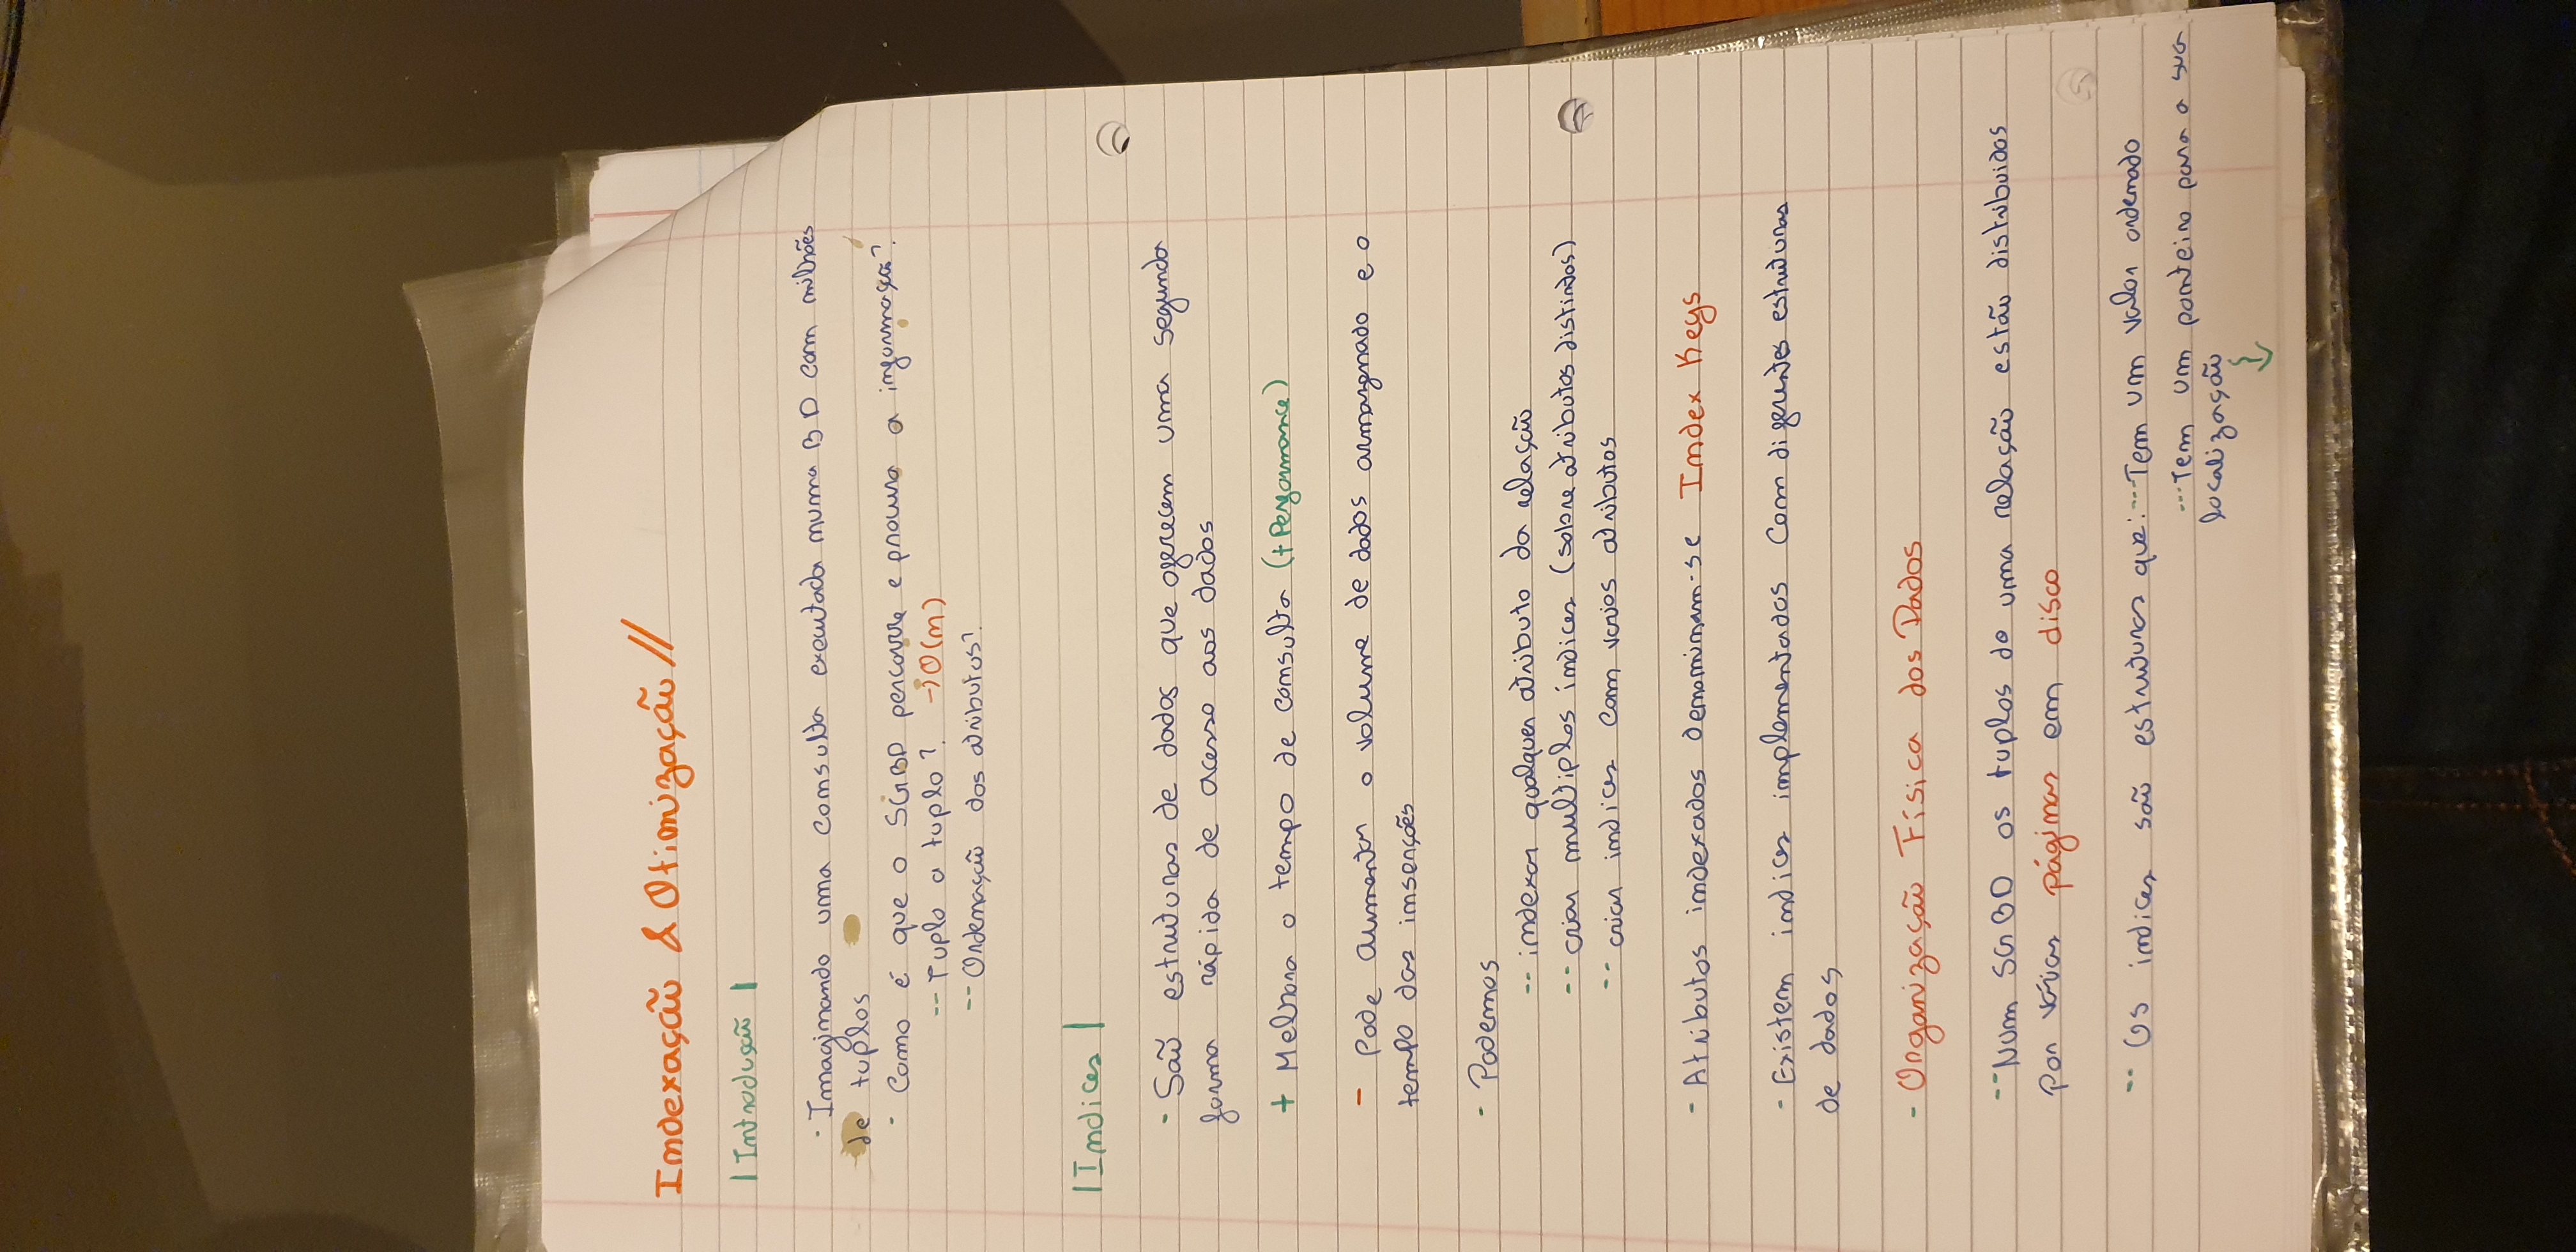 Indexação & Otimização //
| Introdução |
· Imaginando uma consulta executada numa BD com milhões
de tuplos
· Como é que o SGBD percorre e procura a informação?
-- Tuplo a tuplo? → O(n)
-- Ordenação dos atributos?
| Indices |
- São estruturas de dados que oferecem uma segunda
forma rápida de acesso aos dados
+ Melhora o tempo de consulta (+ Performance)
- Pode aumentar o volume de dados armazenado e o
tempo das inserções
- Podemos
-- indexar qualquer atributo da relação
-- criar multiplos índices (sobre atributos distintos)
-- criar indices com varios atributos
- Atributos indexados denominam-se Index Keys
- Existem indices implementados com diferentes estruturas
de dados
- Organização Física dos Dados
-- Num SGBD os tuplos de uma relação estão distribuidos
por várias páginas em disco
-- Os indices são estruturas que: --- Tem um valor ordenado
--- Tem um ponteiro para a sua
localização
↓